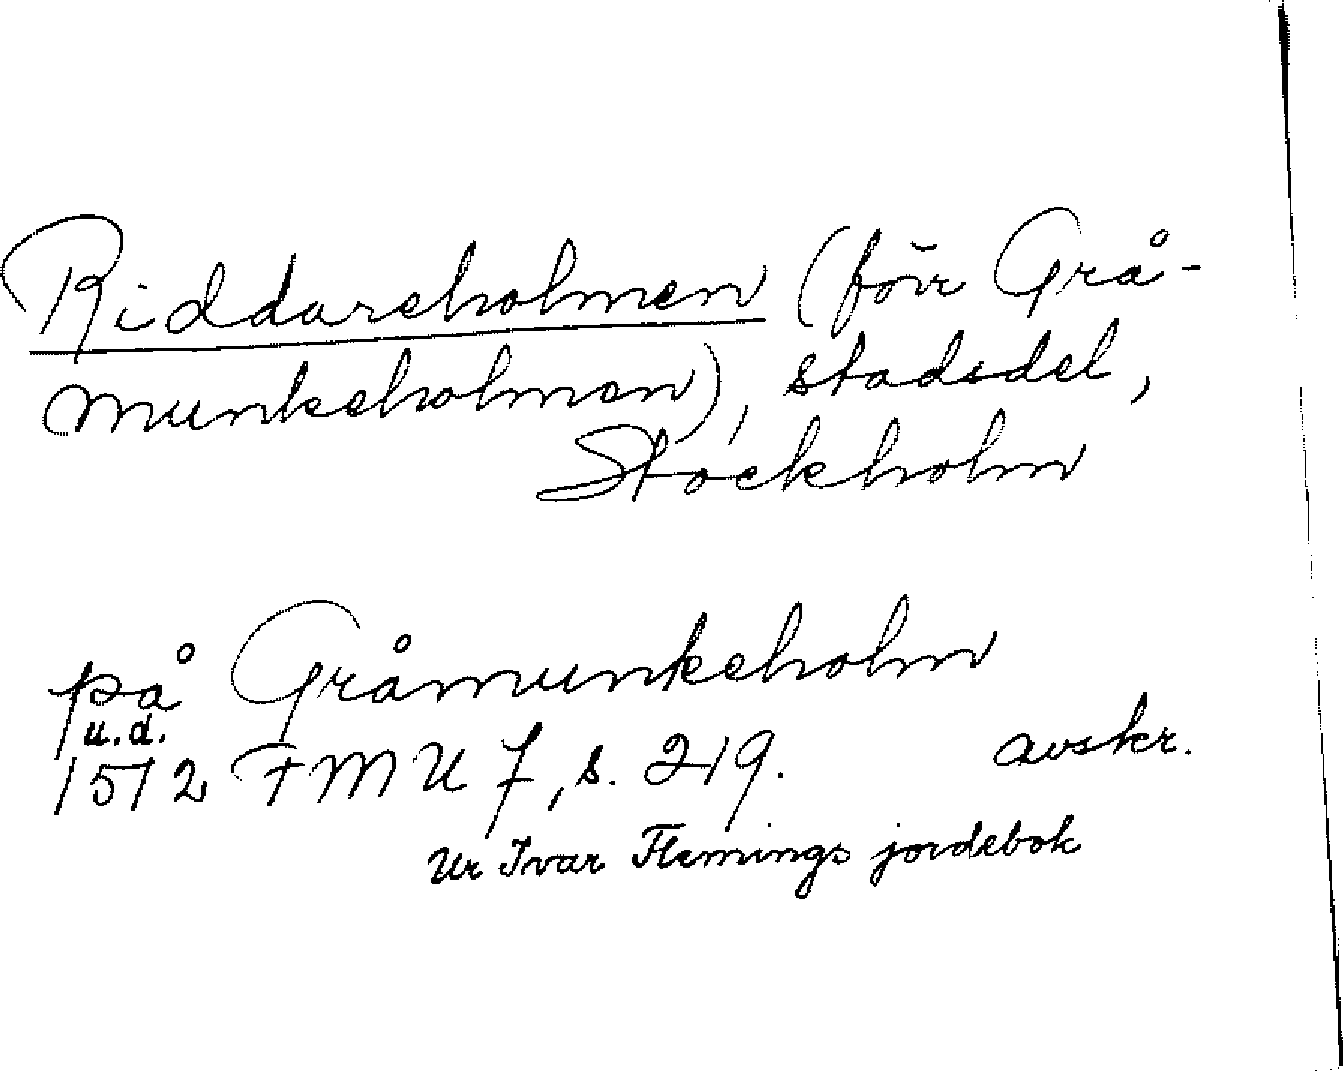 Riddareholmen (förr Grå-
munkeholmen), stadsdel,
Stockholm
på Gråmunkeholm
u.d.
1512 FMU 7, s. 219. avskr.
Ur Ivar Flemings jordebok